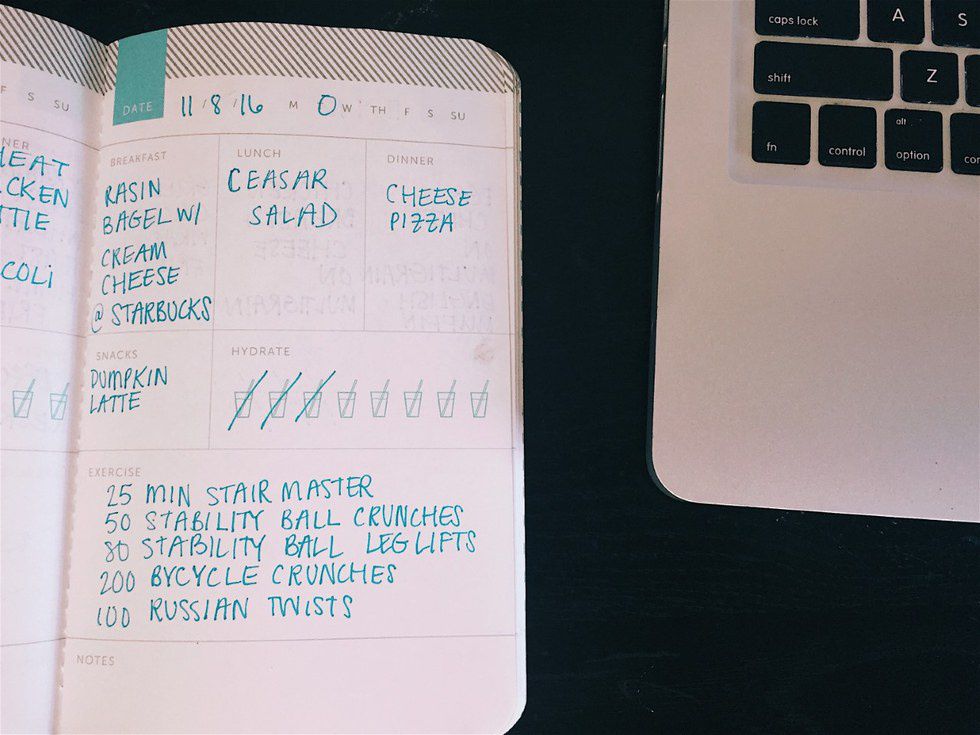 F S SU
NER
HEAT
CKEN
TTLE
COLi
DATE 11/8/16 M W TH F S SU
BREAKFAST
RASIN
BAGEL W/
CREAM
CHEESE
@ STARBUCKS
LUNCH
CEASAR
SALAD
DINNER
CHEESE
PIZZA
SNACKS
PUMPKIN
LATTE
HYDRATE
EXERCISE
25 MIN STAIR MASTER
50 STABILITY BALL CRUNCHES
80 STABILITY BALL LEG LIFTS
200 BYCYCLE CRUNCHES
100 RUSSIAN TWISTS
NOTES
caps lock A S
shift Z
fn control alt option con